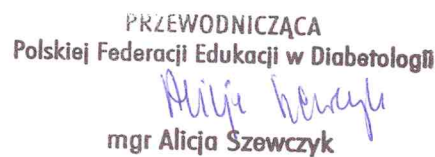 PRZEWODNICZĄCA
Polskiej Federacji Edukacji w Diabetologii
Alicja Szewczyk
mgr Alicja Szewczyk